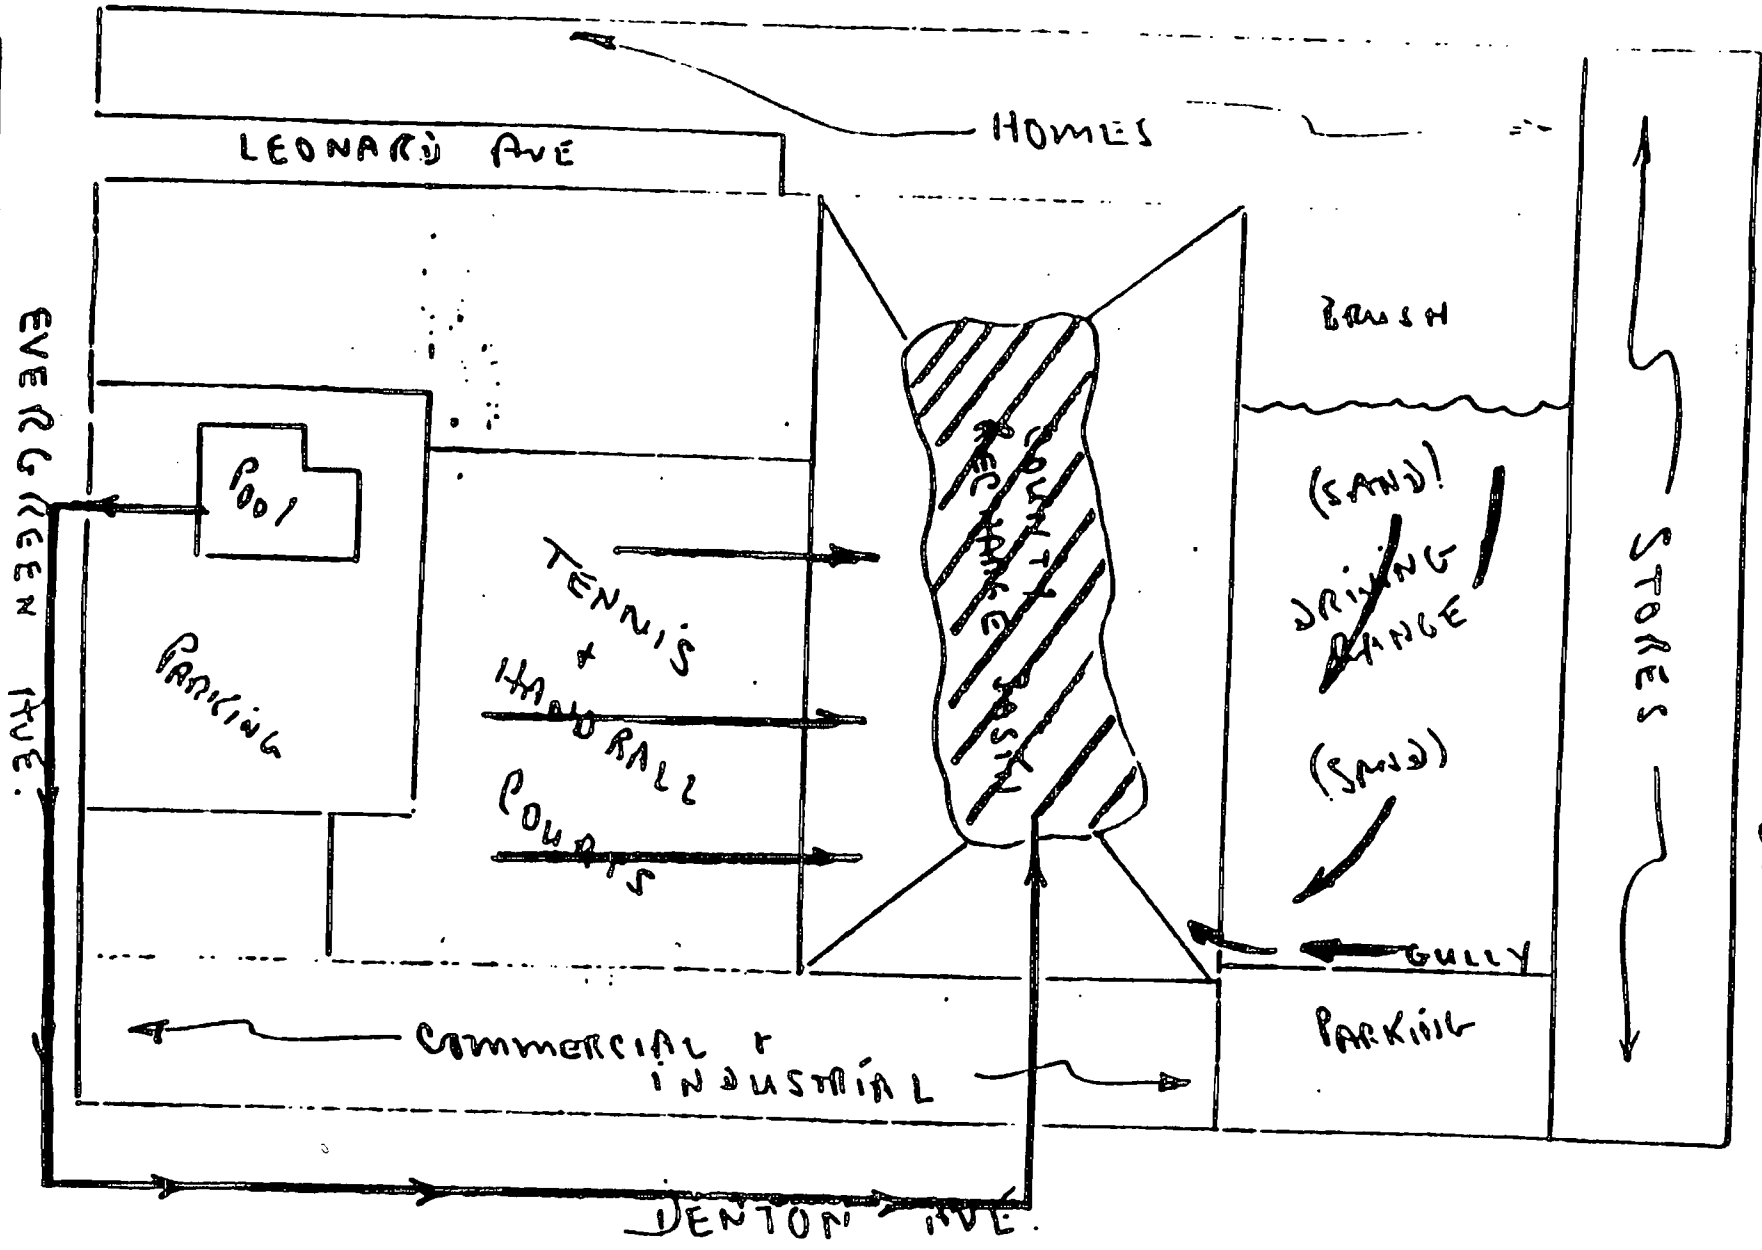 HOMES
LEONARD AVE
BRUSH
EVERGREEN AVE.
POOL
PARKING
TENNIS
+
HANDBALL
COURTS
COUNTY
RECHARGE BASIN
(SAND)
DRIVING
RANGE
(SAND)
STORES
GULLY
PARKING
COMMERCIAL +
INDUSTRIAL
DENTON AVE.